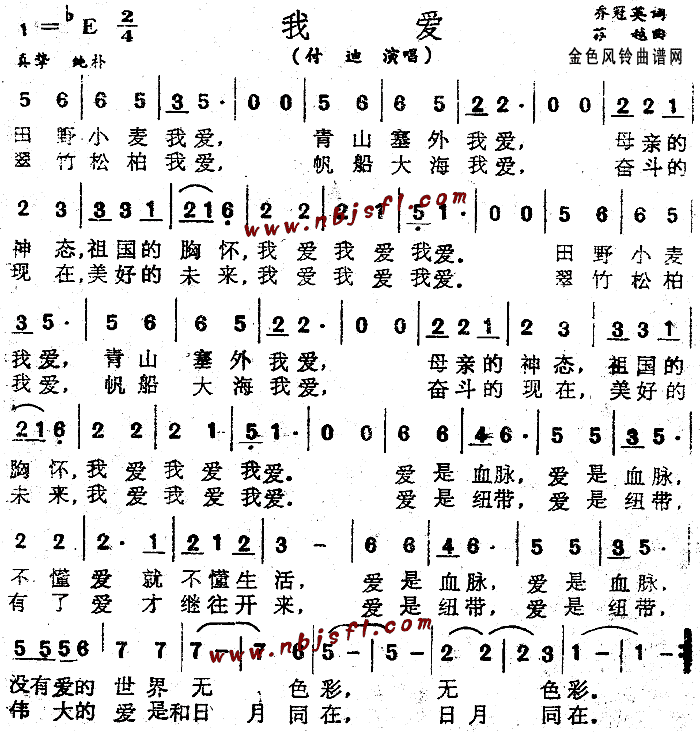 1=♭E 2/4 我 爱 乔冠英词
(付 迪 演唱) 金色风铃曲谱网
真挚 纯朴
5 6 | 6 5 | 3 5· | 0 0 | 5 6 | 6 5 | 2 2· | 0 0 | 2 2 1 |
田 野 小 麦 我 爱, 青 山 塞 外 我 爱, 母亲的
翠 竹 松 柏 我 爱, 帆 船 大 海 我 爱, 奋斗的
2 3 | 3 3 1 | 2 1 6 | 2 2 | 2 1 | 5 1· | 0 0 | 5 6 | 6 5 |
神 态,祖国的 胸 怀,我 爱 我 爱 我爱. 田 野 小 麦
现 在,美好的 未 来,我 爱 我 爱 我爱. 翠 竹 松 柏
www.nbjsfl.com
3 5· | 5 6 | 6 5 | 2 2· | 0 0 | 2 2 1 | 2 3 | 3 3 1 |
我 爱, 青 山 塞 外 我 爱, 母亲的 神 态, 祖国的
我 爱, 帆 船 大 海 我 爱, 奋斗的 现 在, 美好的
2 1 6 | 2 2 | 2 1 | 5 1· | 0 0 | 6 6 | 4 6· | 5 5 | 3 5· |
胸 怀,我 爱 我 爱 我爱. 爱 是 血脉, 爱 是 血脉,
未 来,我 爱 我 爱 我爱. 爱 是 纽带, 爱 是 纽带,
2 2 | 2· 1 | 2 1 2 | 3 – | 6 6 | 4 6· | 5 5 | 3 5· |
不 懂 爱 就 不懂生 活, 爱 是 血脉, 爱 是 血脉,
有 了 爱 才 继往开 来, 爱 是 纽带, 爱 是 纽带,
5 5 5 6 | 7 7 | 7 – | 7 6 | 5 – | 5 – | 2 2 | 2 3 | 1 – | 1 – ‖
www.nbjsfl.com
没有爱的 世 界 无 色 彩, 无 色 彩.
伟 大的 爱 是 和 日 月 同 在, 日 月 同 在.